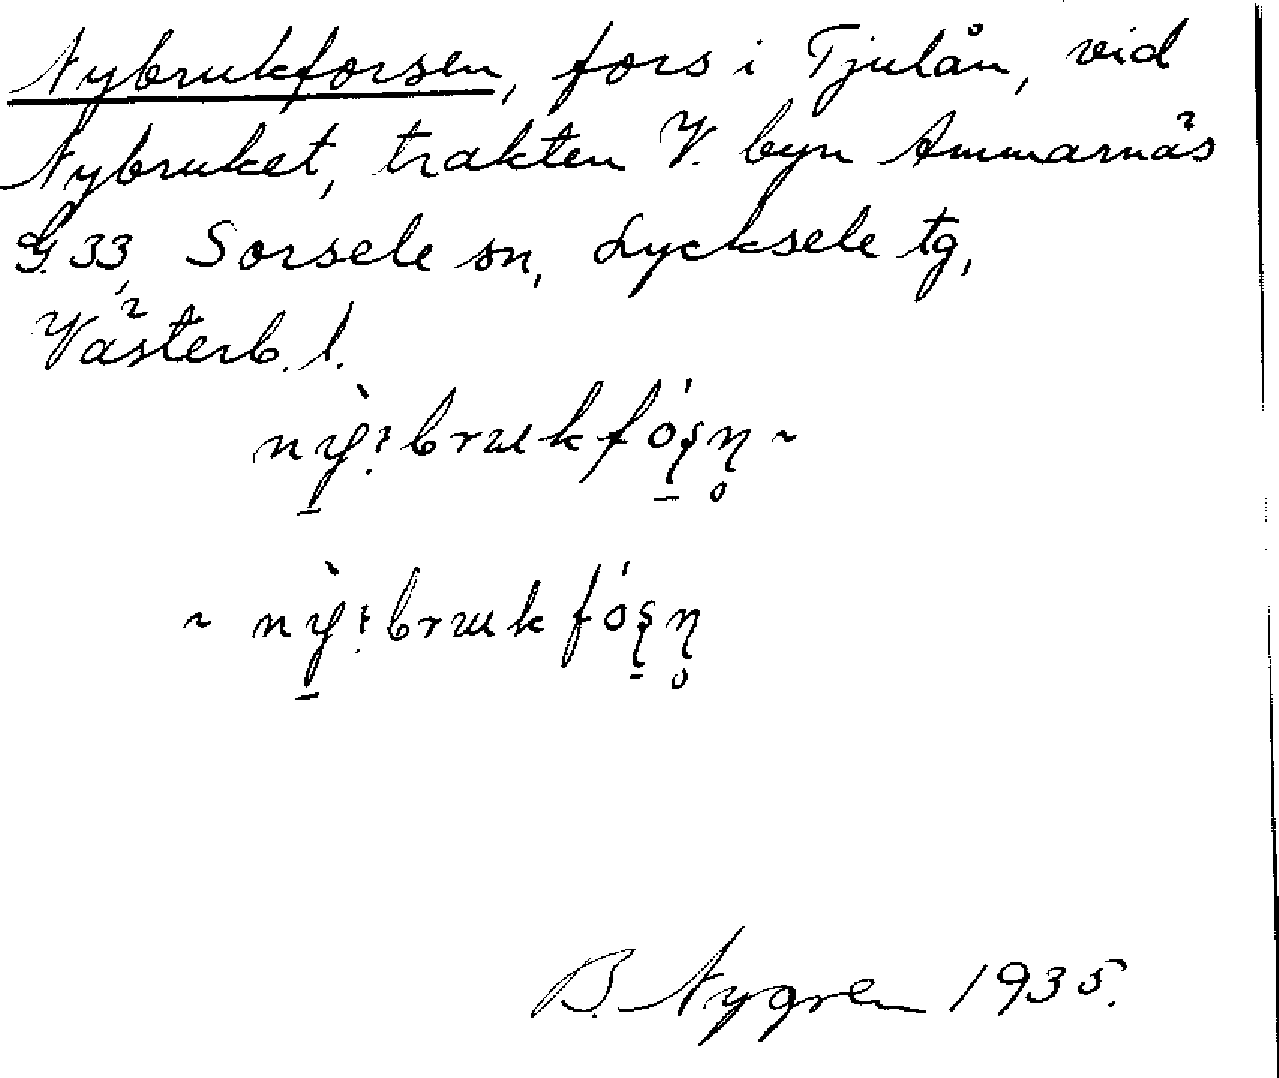 Nybrukforsen, fors i Tjulån, vid
Nybruket, trakten V. byn Ammarnäs
G. 33, Sorsele sn, Lycksele tg,
Västerb. l.
B. Nygren 1935.